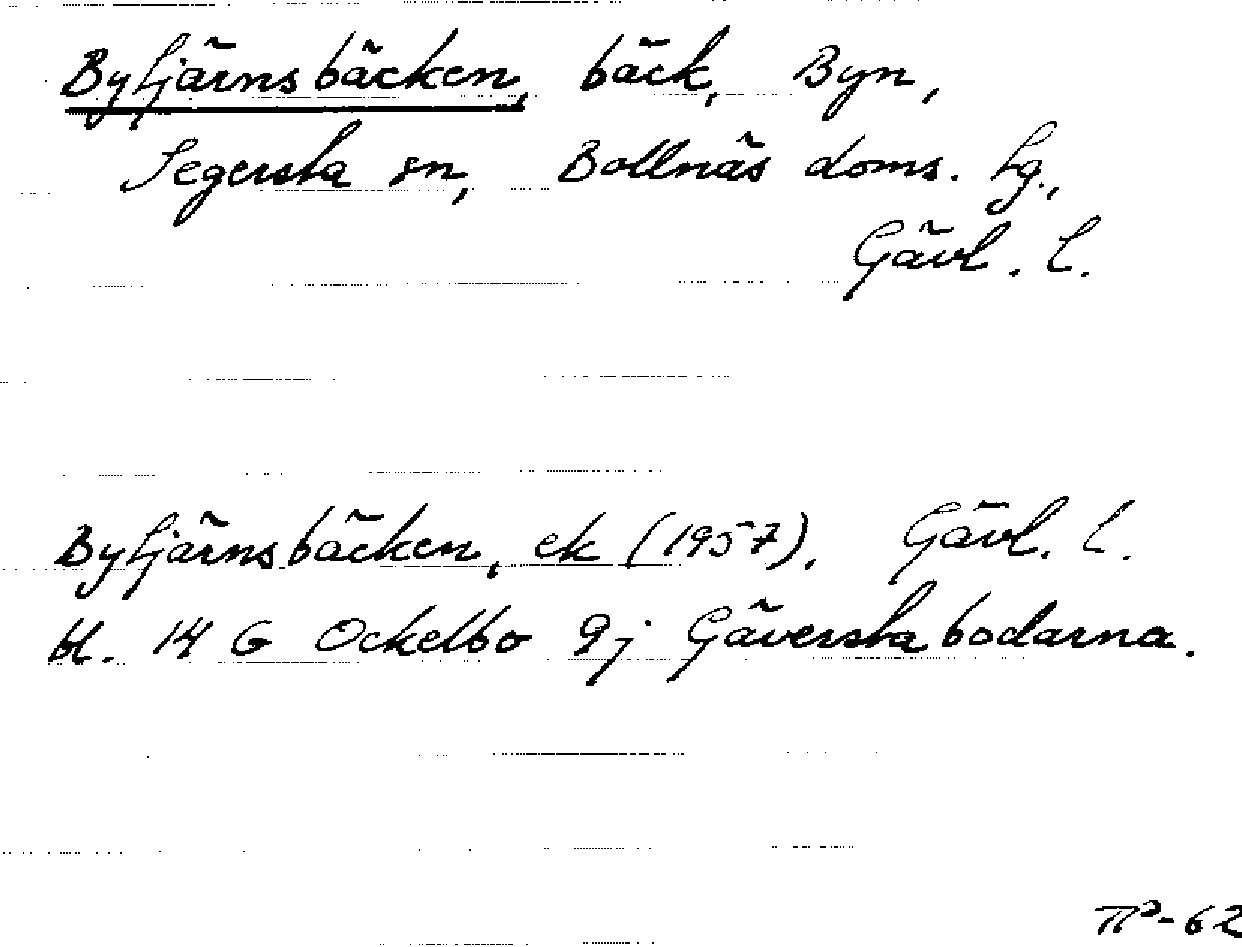 Bytjärnsbäcken, bäck, Byn,
Segersta sn, Bollnäs doms. tg.,
Gävl. l.
Bytjärnsbäcken, ek (1957). Gävl. l.
bl. 14 G Ockelbo 9j Gäverstabodarna.